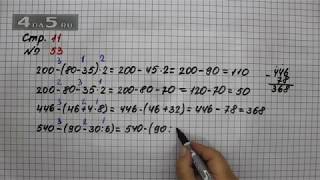 Стр. 11
№ 53
3 1 2
200-(80-35)·2=200-45·2=200-90=110
2 3 1
200-80-35·2=200-80-70=120-70=50
3 2 1
446-(46+4·8)=446-(46+32)=446-78=368
3 2 1
540-(90-30:6)=540-(90·
-446
78
368